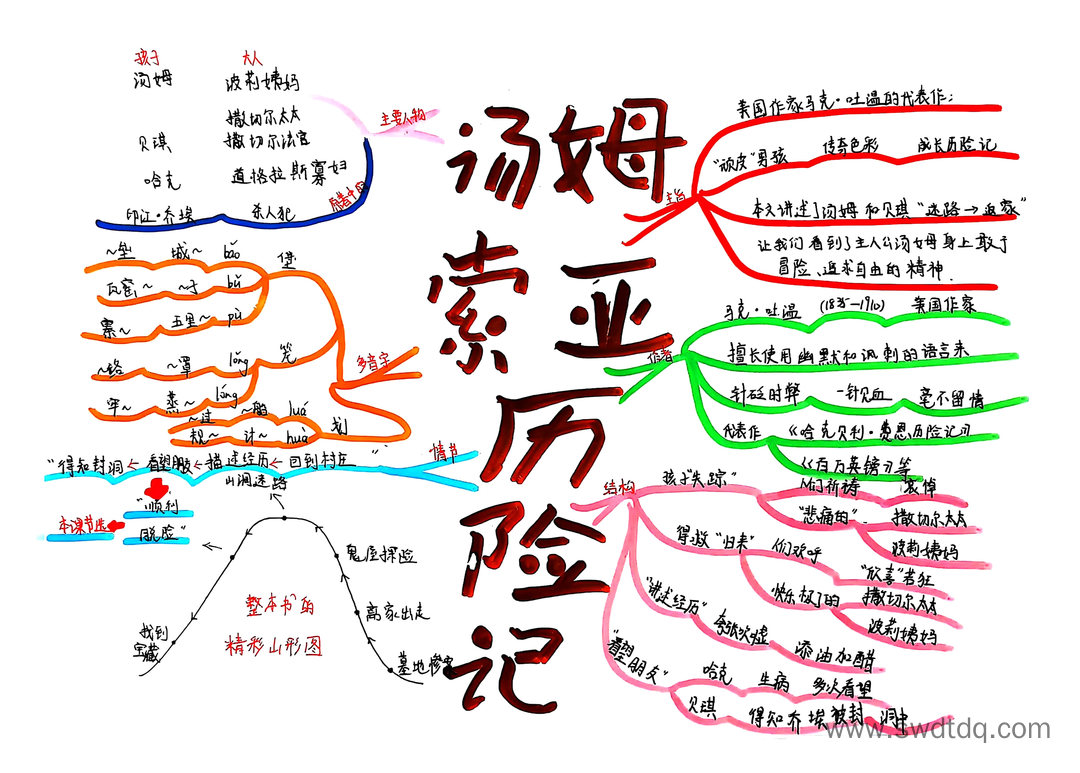 汤姆
索亚
历
险
记
孩子 大人
汤姆 波莉姨妈
撒切尔太太
贝琪 撒切尔法官
哈克 道格拉斯寡妇
主要人物
印江·乔埃 杀人犯
~垒 城~ bǎo
瓦窑~ ~子 bǔ
寨~ 五里~ pù
堡
~络 ~罩 lǒng
牢~ 蒸~ lóng
笼
~过 ~船 huá
规~ 计~ huà
划
多音字
情节
"得知封洞←看望朋友←描述经历←回到村庄"
"顺利
脱险"
本课节选
山洞迷路
鬼屋探险
离家出走
墓地惨案
找到
宝藏
整本书的
精彩山形图
主旨
美国作家马克·吐温的代表作;
"顽皮"男孩 传奇色彩 成长历险记
本文讲述了汤姆和贝琪"迷路→返家"
让我们看到了主人公汤姆身上敢于
冒险、追求自由的精神.
作者
马克·吐温 (1835—1910) 美国作家
擅长使用幽默和讽刺的语言来
针砭时弊 一针见血 毫不留情
代表作 《哈克贝利·费恩历险记》
《百万英镑》等
结构
孩子失踪" 人们祈祷 哀悼
"悲痛的" 撒切尔太太
波莉姨妈
得救"归来" 人们欢呼 "欣喜"若狂
"快乐极了的 撒切尔太太
波莉姨妈
"讲述经历" 夸张吹嘘 添油加醋
"看望朋友" 哈克 生病 多次看望
贝琪 得知乔埃被封 洞中
www.swdtdq.com